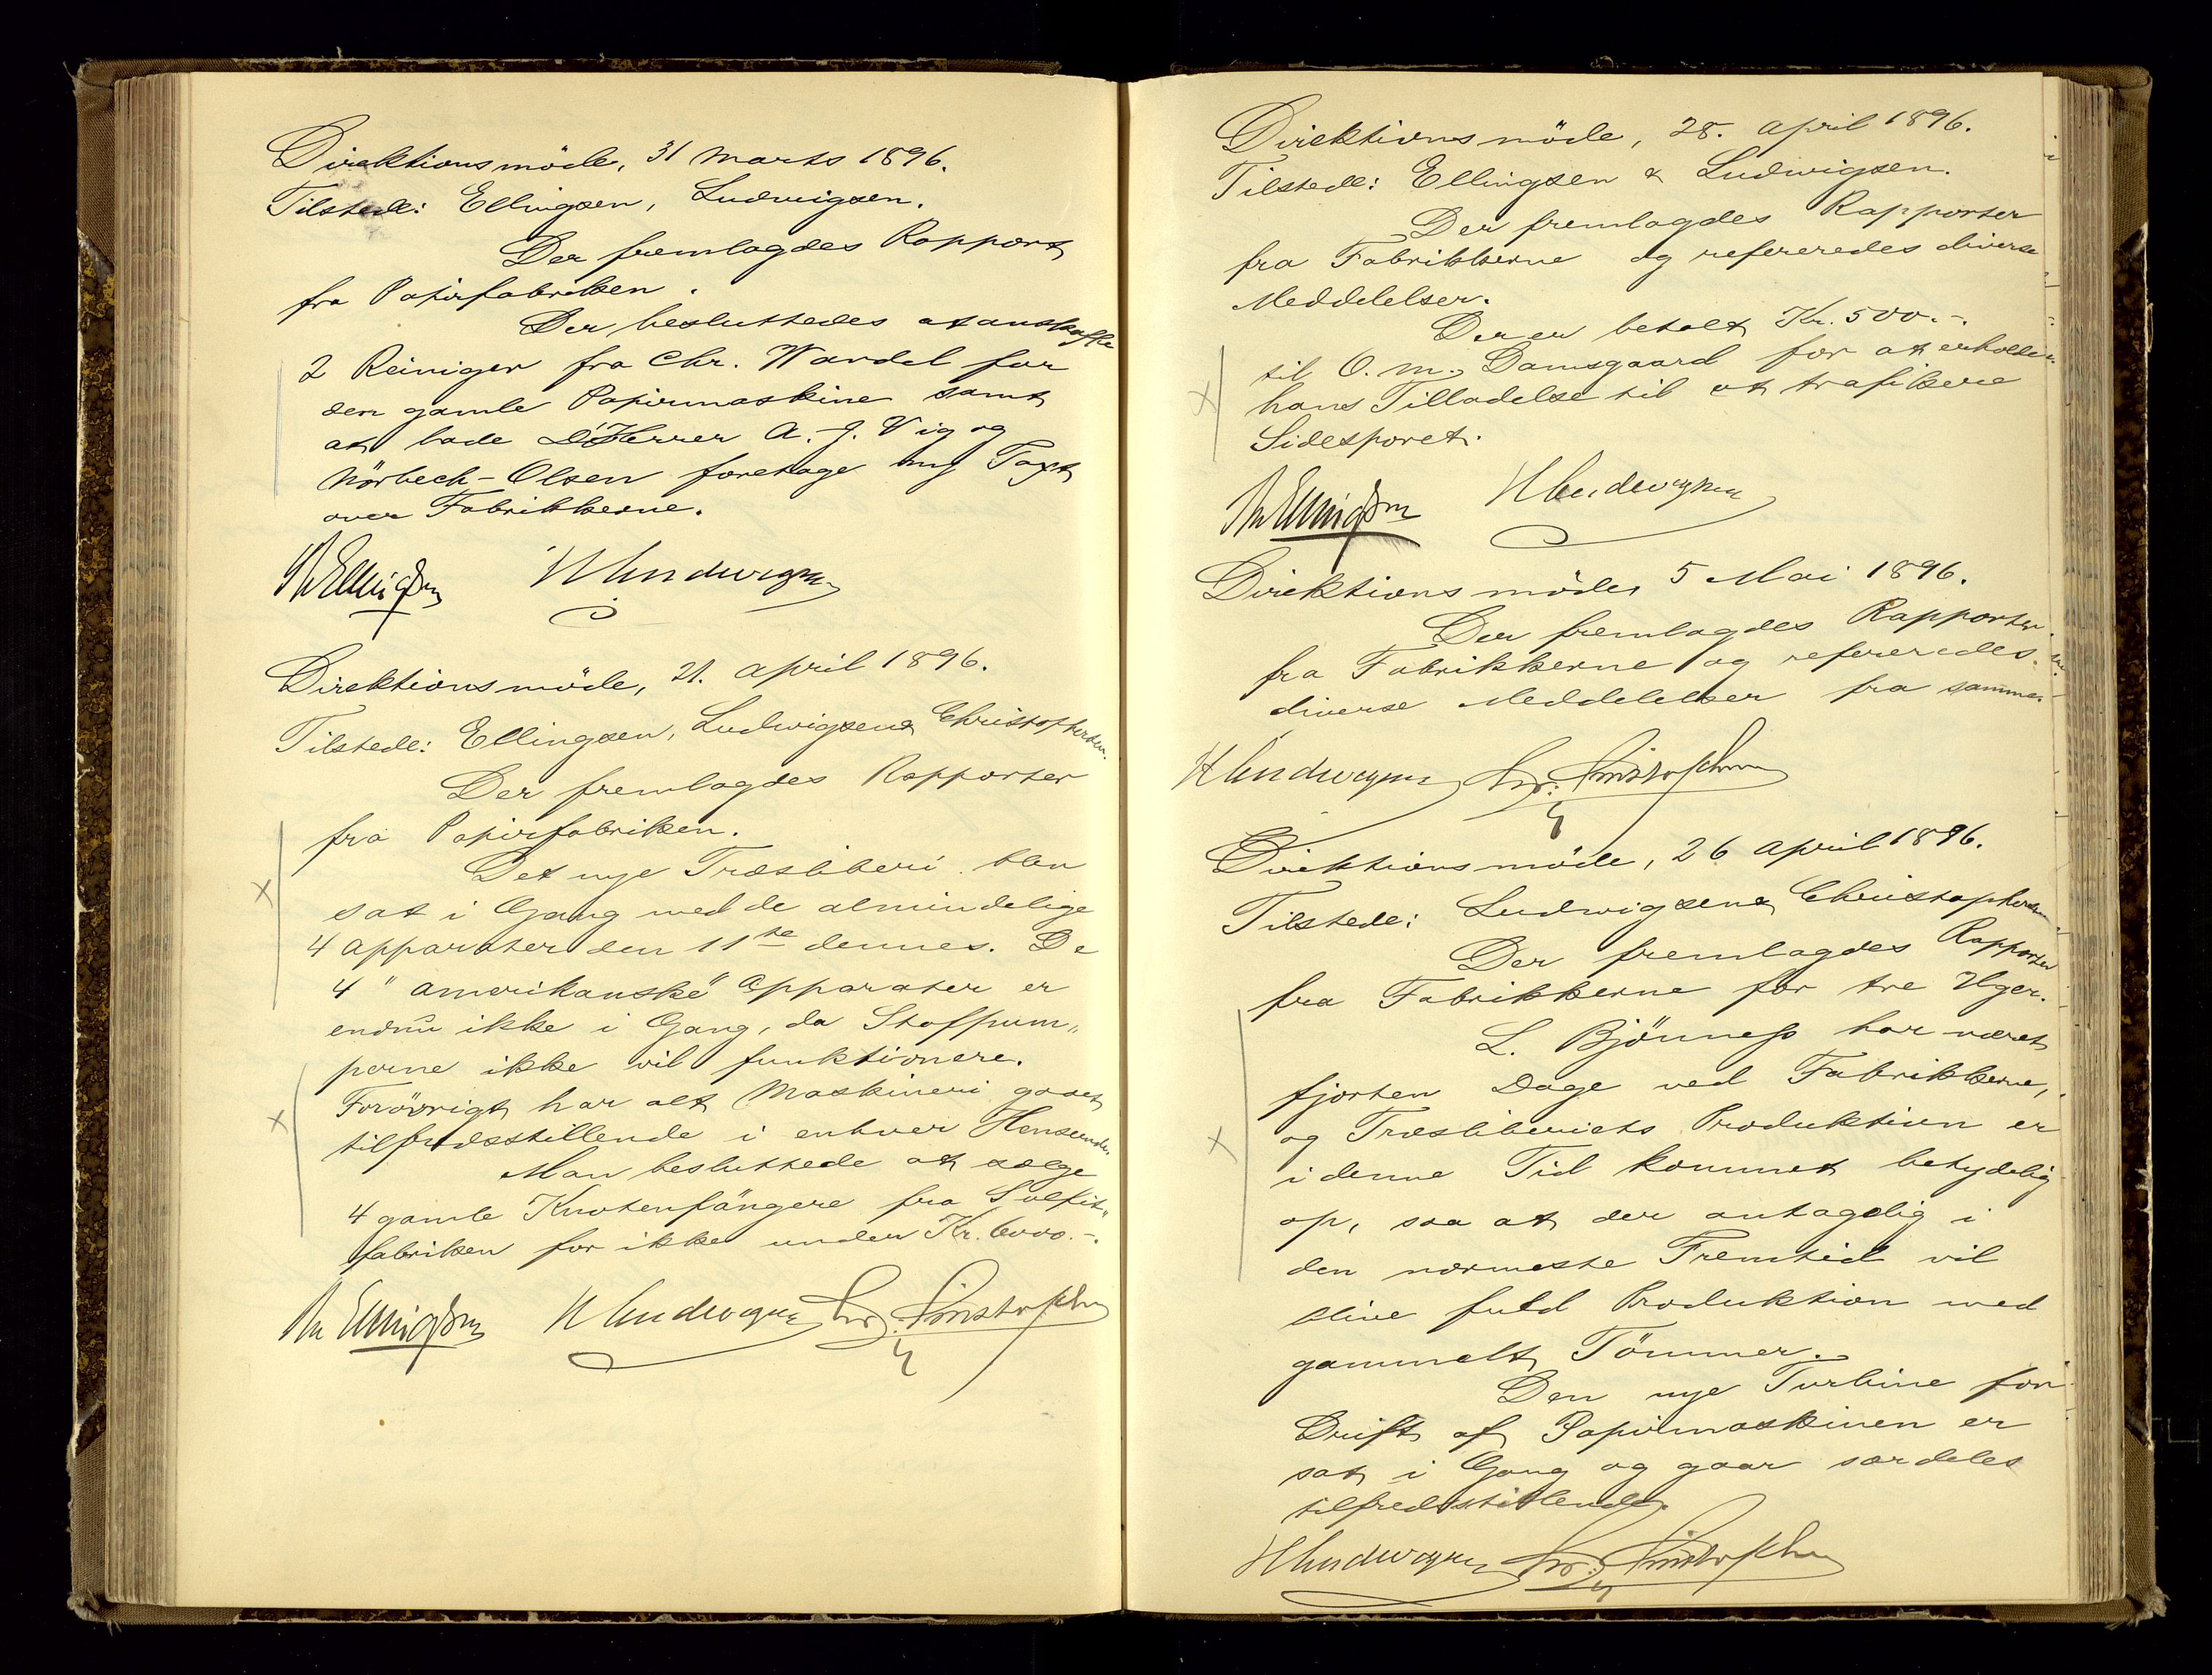 Direktionsmöde, 31 Marts 1896.
Tilstede: Ellingsen, Ludwigsen.
Der fremlagdes Rapport
fra Papirfabriken.
Der besluttedes at anskaffe
2 Reiniger fra Chr. Wandel for
den gamle Papirmaskine samt
at lade D'Herrer A. J. Vig og
Nörbech-Olsen foretage ny Taxt
over Fabrikkerne.
Ellingsen HLudwigsen
Direktionsmöde, 21. April 1896.
Tilstede: Ellingsen, Ludwigsen & Christophersen.
Der fremlagdes Rapporter
fra Papirfabriken.
Det nye Træsliberi blev
sat i Gang med de almindelige
4 Apparater den 11te dennes. De
4 "amerikanske" Apparater er
endnu ikke i Gang, da Stofpum„
perne ikke vil funktionere.
Forövrigt har alt Maskineri gaaet
tilfredsstillende i enhver Henseende.
Man besluttede at sælge
4 gamle Knotenfängere fra Sulfit„
fabriken for ikke under Kr. 6000.-.
Ellingsen HLudwigsen Chr. Christophersen
Direktionsmöde, 28. April 1896.
Tilstede: Ellingsen & Ludwigsen.
Der fremlagdes Rapporter
fra Fabrikkerne og refereredes diverse
Meddelelser.
Der er betalt Kr. 500.-.
til O. M. Damsgaard for at erholde
hans Tilladelse til at trafikere
Sidesporet.
Ellingsen HLudwigsen
Direktionsmöde, 5 Mai 1896.
Der fremlagdes Rapporter
fra Fabrikkerne og refereredes
diverse Meddelelser fra samme.
HLudwigsen Chr. Christophersen
Direktionsmöde, 26 April 1896.
Tilstede: Ludwigsen & Christophersen
Der fremlagdes Rapporter
fra Fabrikkerne for tre Uger.
L. Bjönness har været
fjorten Dage ved Fabrikkerne,
og Træsliberiets Produktion er
i denne Tid kommet betydelig
op, saa at der antagelig i
den nærmeste Fremtid vil
blive fuld Produktion med
gammelt Tömmer.
Den nye Turbine for
Drift af Papirmaskinen er
sat i Gang og gaar særdeles
tilfredsstillende.
HLudwigsen Chr. Christophersen